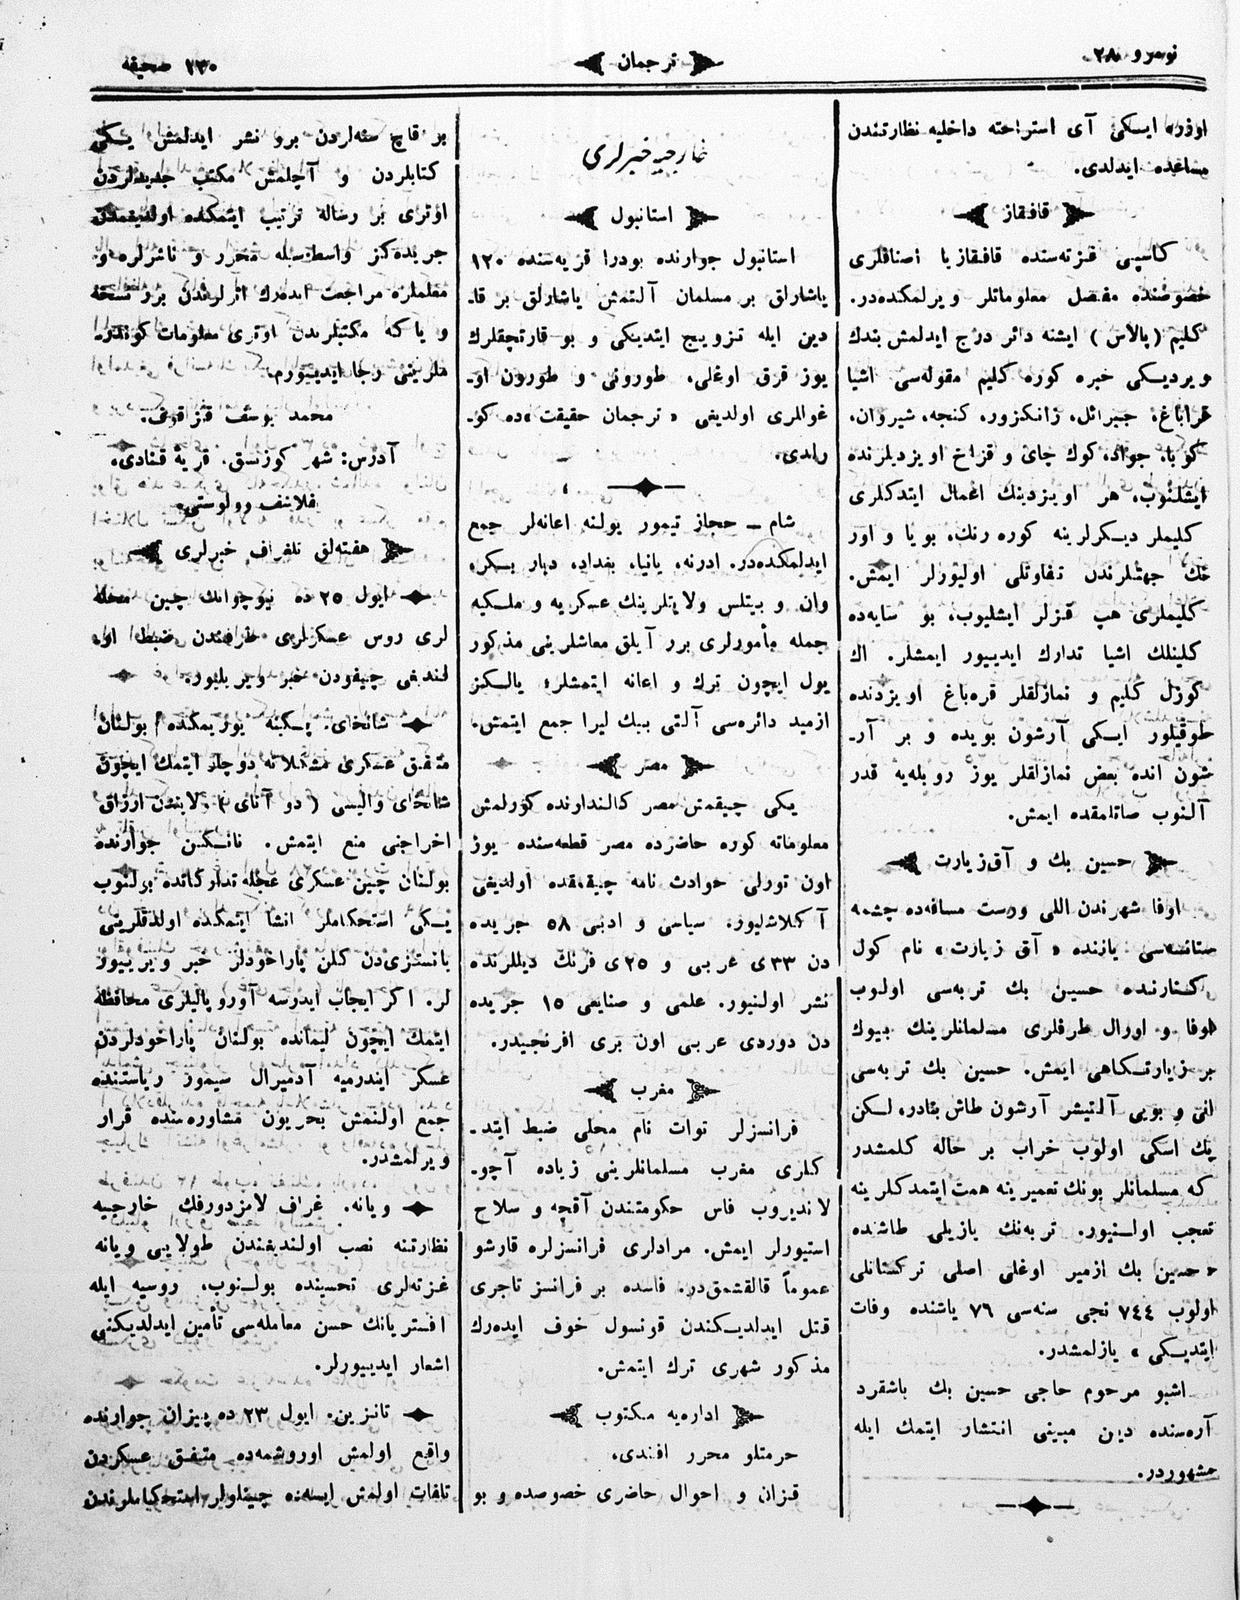 نومرو ٢٨
ترجمان
٢٣٠ صحیفه
اوفره ایسکی آی استراحته داخلیه نظارتندن
مساعده ایدلدی.
قافقاز
کاسپی غزته‌سنده قافقازیا اصنافلری
خصوصنده مفصل معلوماتلر ویرلمکده‌در.
کلیم (پالاس) ایشنه دائر درج ایدلمش بندك
ویردیکی خبره کوره کلیم مقوله‌سی اشیا
قراباغ، جبرائل، زانکزور، کنجه، شیروان،
کوبا، جواد، کوك چای و قزاخ اویزدیلرنده
ایشلنوب، هر اویزدینك اعمال ایتدکلری
کلیملر دیکرلرینه کوره رنك، بویا و اور
نك جهتلرندن تفاوتلی اولیورلر ایمش.
کلیملری هپ قزلر ایشلیوب، بو سایه‌ده
کلینلك اشیا تدارك ایدییور ایمشلر. اك
کوزل کلیم و نمازلقلر قره‌باغ اویزدنده
طوقیلور ایکی آرشون بویده و بر آر-
شون انده بعض نمازلقلر یوز روبله‌یه قدر
آلنوب صاتلمقده ایمش.
حسین بك و آق زیارت
اوفا شهرندن اللی وورست مسافه‌ده چشمه
ستانسه‌سی یاننده «آق زیارت» نام کول
کنارنده حسین بك تربه‌سی اولوب
اوفا و اورال طرفلری مسلمانلرینك بیوك
بر زیارتکاهی ایمش. حسین بك تربه‌سی
انی و بویی آلتیشر آرشون طاش بنادر، لکن
پك اسکی اولوب خراب بر حاله کلمشدر
که مسلمانلر بونك تعمیرینه همت ایتمدکلرینه
تعجب اولنیور. تربه‌نك یازیلی طاشنده
«حسین بك ازمیر اوغلی اصلی ترکستانلی
اولوب ٧٤٤ نجی سنه‌سی ٧٦ یاشنده وفات
ایتدیکی» یازلمشدر.
اشبو مرحوم حاجی حسین بك باشقرد
آره‌سنده دین مبینی انتشار ایتمك ایله
مشهوردر.
خارجیه خبرلری
استانبول
استانبول جوارنده بودرا قریه‌سنده ١٢٠
یاشارلق بر مسلمان آلتمش یاشارلق بر قا-
دین ایله تزویج ایتدیکی و بو قارتچقلرك
یوز قرق اوغلی، طورونی و طورون او-
غوللری اولدیغی «ترجمان حقیقت»ده کو-
رلدی.
شام ــ حجاز تیمور یولنه اعانه‌لر جمع
ایدلمکده‌در. ادرنه، یانیا، بغداد، دیار بکر،
وان و بیتلس ولایتلرینك عسکریه و ملکیه
جمله مأمورلری برر آیلق معاشلرینی مذکور
یول ایچون ترك و اعانه ایتمشلر؛ یالکز
ازمید دائره‌سی آلتی بیك لیرا جمع ایتمش.
مصر
یکی چیقمش مصر کالندارنده کورلمش
معلوماته کوره حاضرده مصر قطعه‌سنده یوز
اون تورلی حوادث نامه چیقمقده اولدیغی
آکلاشلیور. سیاسی و ادبی ٥٨ جریده
دن ٣٣ی عربی و ٢٥ی فرنك دیللرنده
نشر اولنیور. علمی و صنایعی ١٥ جریده
دن دوردی عربی اون بری افرنجیدر.
مغرب
فرانسزلر توات نام محلی ضبط ایتد-
کلری مغرب مسلمانلرینی زیاده آچو-
لاندیروب فاس حکومتندن آقچه و سلاح
استیورلر ایمش. مرادلری فرانسزلره قارشو
عموماً قالقشمق‌در. فاسده بر فرانسز تاجری
قتل ایدلدیکندن قونسول خوف ایده‌رك
مذکور شهری ترك ایتمش.
اداره‌یه مکتوب
حرمتلو محرر افندی،
قزان و احوال حاضری خصوصده و بو
بر قاچ سنه‌لردن برو نشر ایدلمش یکی
کتابلردن و آچلمش مکتب جدیدلردن
اوتری بر رساله ترتیب ایتمکده اولدیغمدن
جریده‌کز واسطه‌سیله محرر و ناشرلره و
معلملره مراجعت ایده‌رك اثرلرندن برر نسخه
و یا که مکتبلرندن اوتری معلومات کوندر
ملرینی رجا ایدییورم.
محمد یوسف قزاقوف.
آدرس: شهر کوزنسق، قریهٔ قنادی،
هفته‌لق تلغراف خبرلری
ایول ٢٥ ده نیوچوانك چین محله
لری روس عسکرلری طرفندن ضبط او-
لندیغی چیفودن خبر ویریلیور.
شانخای. پکینه یوریمکده بولنان
متفق عسکری مشکلاته دوچار ایتمك ایچون
شانخای والیسی (دو آنای) ولایتدن ارزاق
اخراجنی منع ایتمش. نانکین جوارنده
بولنان چین عسکری عجله تدارکاتده بولنوب
یکی استحکاملر انشا ایتمکده اولدقلرینی
یانستزی‌دن کلن پاراخودلر خبر ویرییور
لر. اکر ایجاب ایدرسه آوروپالیلری محافظه
ایتمك ایچون لیمانده بولنان پاراخودلردن
عسکر ایندرمیه آدمیرال سیمور ریاستنده
جمع اولنمش بحریون مشاوره‌سنده قرار
ویرلمشدر.
ویانه. غراف لامزدورفك خارجیه
نظارتنه نصب اولندیغندن طولایی ویانه
غزته‌لری تحسینده بولنوب، روسیه ایله
افستریانك حسن معامله‌سی تأمین ایدلدیکنی
اشعار ایدییورلر.
تانزین. ایول ٢٣ ده پیزان جوارنده
واقع اولمش اوروشمه‌ده متفق عسکردن
تلفات اولمش ایسه‌ده چینلولر استحکاملرندن